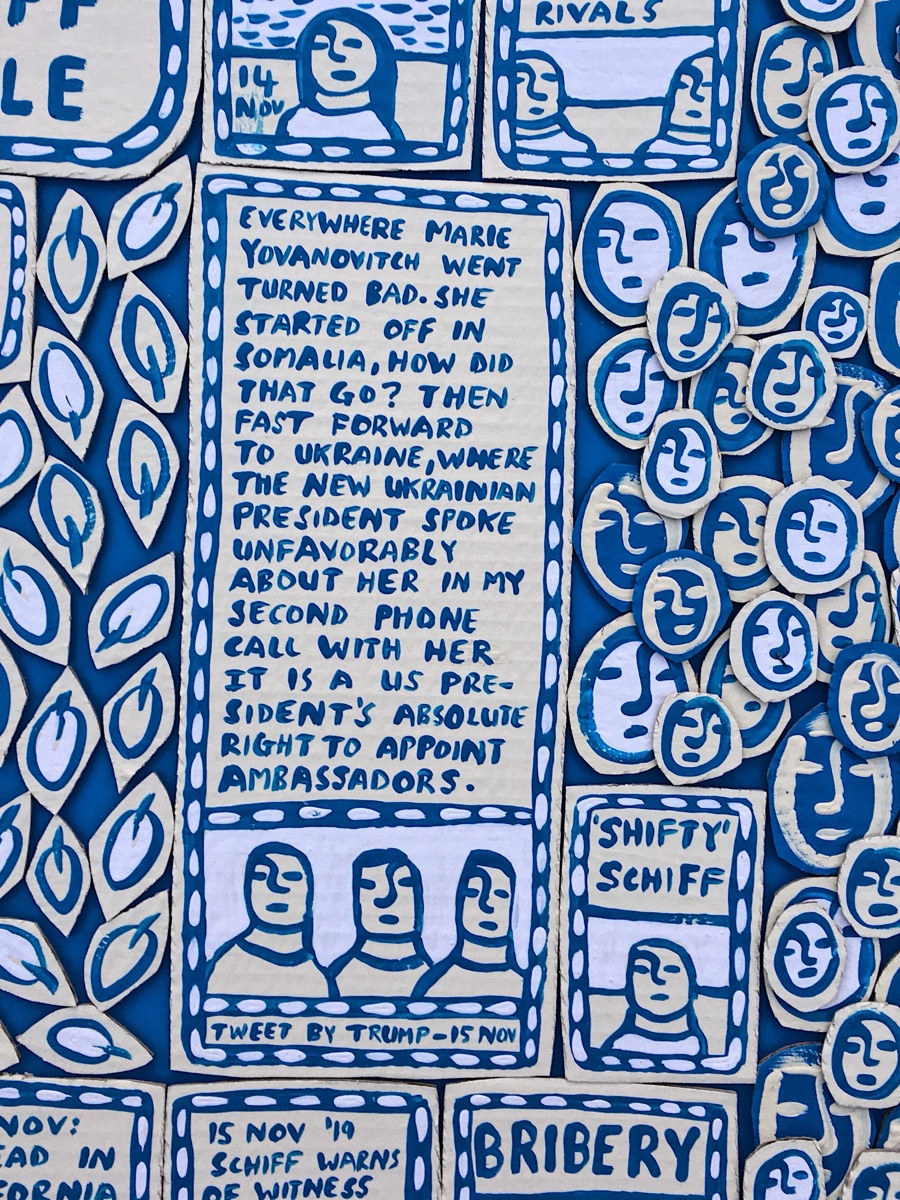 LE
14
NOV
RIVALS
EVERYWHERE MARIE
YOVANOVITCH WENT
TURNED BAD. SHE
STARTED OFF IN
SOMALIA, HOW DID
THAT GO? THEN
FAST FORWARD
TO UKRAINE, WHERE
THE NEW UKRAINIAN
PRESIDENT SPOKE
UNFAVORABLY
ABOUT HER IN MY
SECOND PHONE
CALL WITH HER
IT IS A US PRE-
SIDENT'S ABSOLUTE
RIGHT TO APPOINT
AMBASSADORS.
TWEET BY TRUMP-15 NOV
'SHIFTY'
SCHIFF
NOV:
EAD IN
FORNIA
15 NOV '19
SCHIFF WARNS
OF WITNESS
BRIBERY